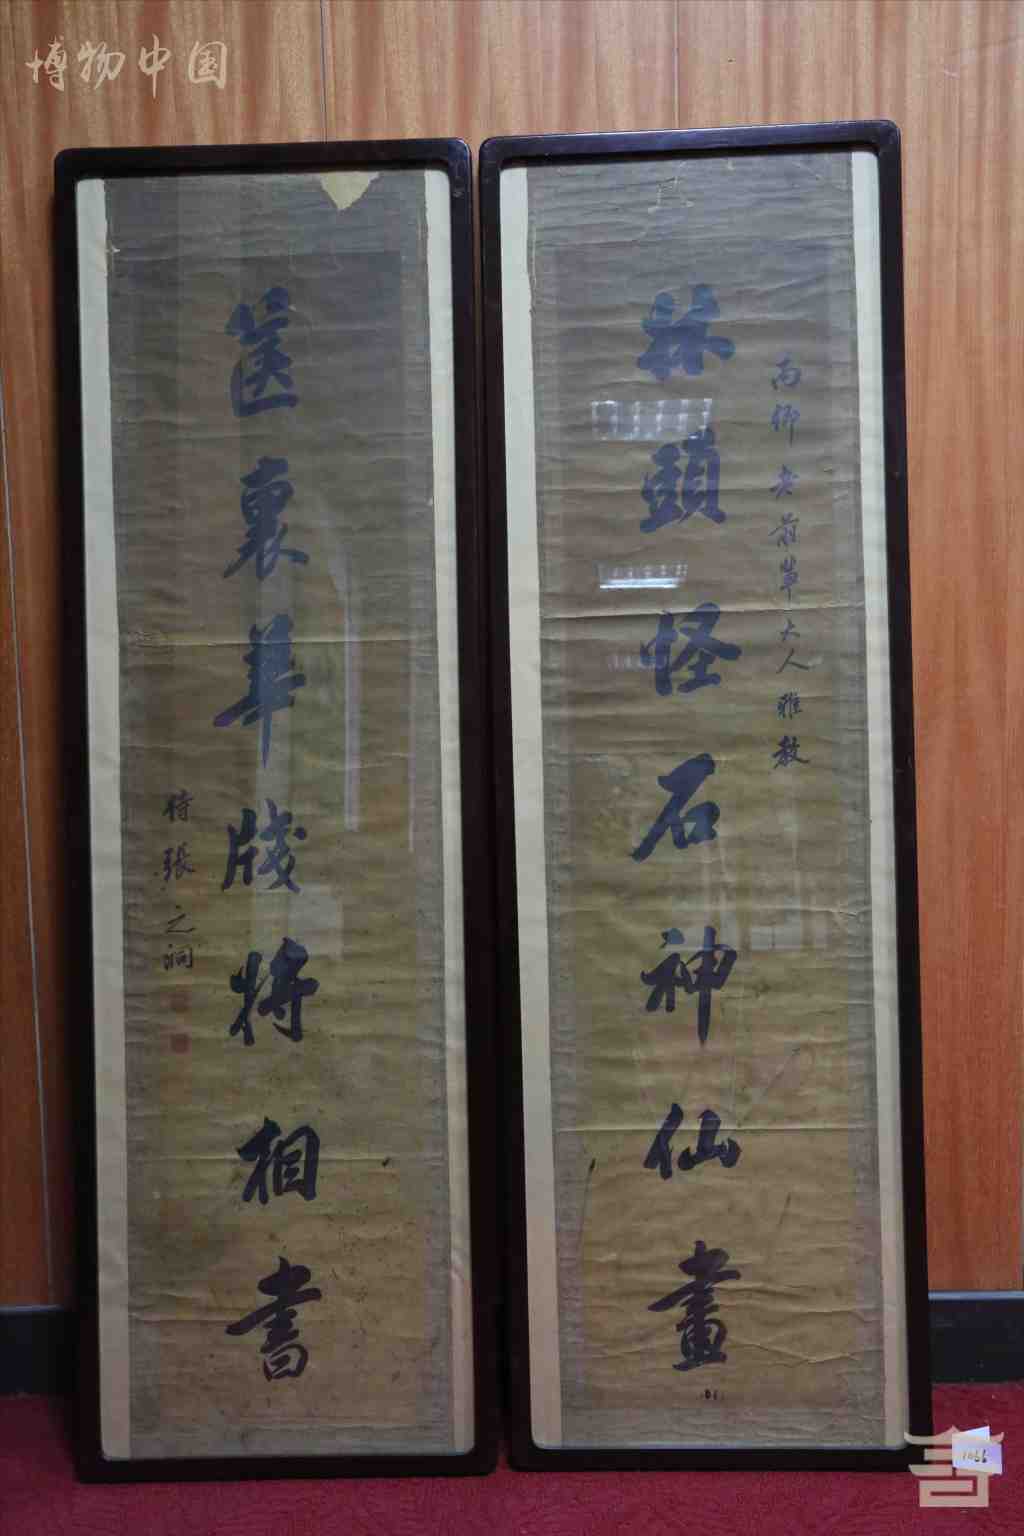 博物中国
卿老前輩大人雅教
牀頭怪石神仙畫
篋裏華牋將相書
侍張之洞
1066